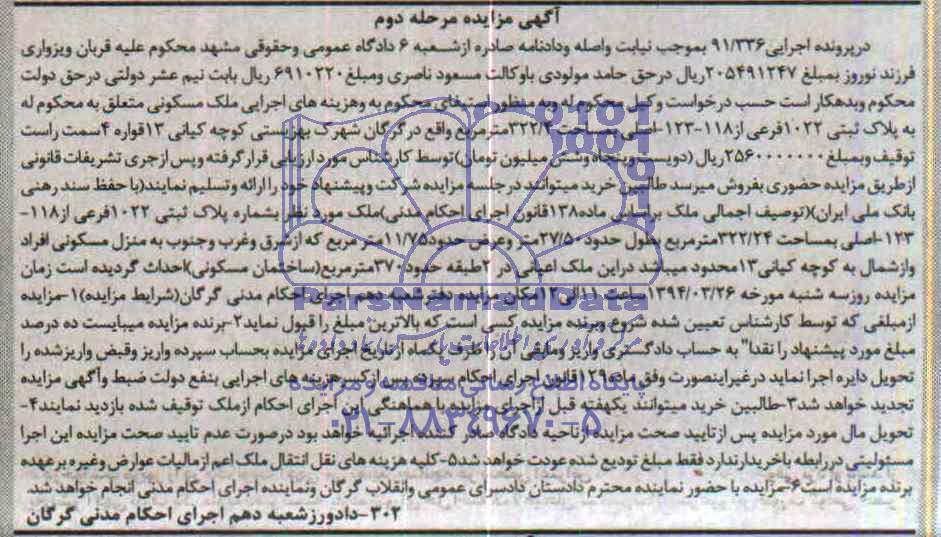 آگهی مزایده مرحله دوم
درپرونده اجرایی ۹۱/۳۳۶ بموجب نیابت واصله ودادنامه صادره ازشعبه ۶ دادگاه عمومی وحقوقی مشهد محکوم علیه قربان ویزواری
فرزند نوروز بمبلغ ۲۰۵۴۹۱۲۴۷ریال درحق حامد مولودی باوکالت مسعود ناصری ومبلغ ۶۹۱۰۲۲۰ ریال بابت نیم عشر دولتی درحق دولت
محکوم وبدهکار است حسب درخواست وکیل محکوم له وبه منظور استیفای محکوم به وهزینه های اجرایی ملک مسکونی متعلق به محکوم له
به پلاک ثبتی ۱۰۲۲فرعی از۱۱۸-۱۲۳-اصلی بمساحت ۳۲۲/۴مترمربع واقع در گرگان شهرک بهزیستی کوچه کیانی ۱۳قواره ۴سمت راست
توقیف وبمبلغ ۲۵۶۰۰۰۰۰۰۰ریال (دویست وپنجاه وشش میلیون تومان)توسط کارشناس مورد ارزیابی قرار گرفته وپس ازجری تشریفات قانونی
ازطریق مزایده حضوری بفروش میرسد طالبین خرید میتوانند درجلسه مزایده شرکت وپیشنهاد خود را ارائه وتسلیم نمایند(با حفظ سند رهنی
بانک ملی ایران)(توصیف اجمالی ملک براساس ماده۱۳۸قانون اجرای احکام مدنی)ملک مورد نظر بشماره پلاک ثبتی ۱۰۲۲فرعی از۱۱۸-
۱۲۳-اصلی بمساحت ۳۲۲/۲۴مترمربع بطول حدود ۲۷/۵۰متر وعرض حدود۱۱/۷۵متر مربع که ازشرق وغرب وجنوب به منزل مسکونی افراد
وازشمال به کوچه کیانی۱۳محدود میباشد دراین ملک اعیانی در ۲طبقه حدود۳۷۰مترمربع(ساختمان مسکونی)احداث گردیده است زمان
مزایده روزسه شنبه مورخه ۱۳۹۴/۰۳/۲۶ساعت ۱۱الی۱۲مکان مزایده دفترشعبه دهم اجرای احکام مدنی گرگان(شرایط مزایده)۱-مزایده
ازمبلغی که توسط کارشناس تعیین شده شروع وبرنده مزایده کسی است که بالاترین مبلغ را قبول نماید۲-برنده مزایده میبایست ده درصد
مبلغ مورد پیشنهاد را نقدا" به حساب دادگستری واریز ومابقی آن را ظرف یکماه ازتاریخ اجرای مزایده بحساب سپرده واریز وقبض واریزشده را
تحویل دایره اجرا نماید درغیراینصورت وفق ماده ۱۲۹قانون اجرای احکام سپرده پس ازکسرهزینه های اجرایی بنفع دولت ضبط وآگهی مزایده
تجدید خواهد شد۳-طالبین خرید میتوانند یکهفته قبل از اجرای مزایده باهماهنگی این اجرای احکام ازملک توقیف شده بازدید نمایند۴-
تحویل مال مورد مزایده پس ازتایید صحت مزایده ازناحیه دادگاه صادر کننده اجرائیه خواهد بود درصورت عدم تایید صحت مزایده این اجرا
مسئولیتی دررابطه باخریدارندارد فقط مبلغ تودیع شده عودت خواهد شد۵-کلیه هزینه های نقل انتقال ملک اعم ازمالیات عوارض وغیره برعهده
برنده مزایده است۶-مزایده با حضور نماینده محترم دادستان دادسرای عمومی وانقلاب گرگان ونماینده اجرای احکام مدنی انجام خواهد شد
۳۰۲-دادورزشعبه دهم اجرای احکام مدنی گرگان
ParsNamadData
پایگاه اطلاع رسانی مناقصه و مزایده
۰۲۱-۸۸۳۴۹۶۷۰-۵